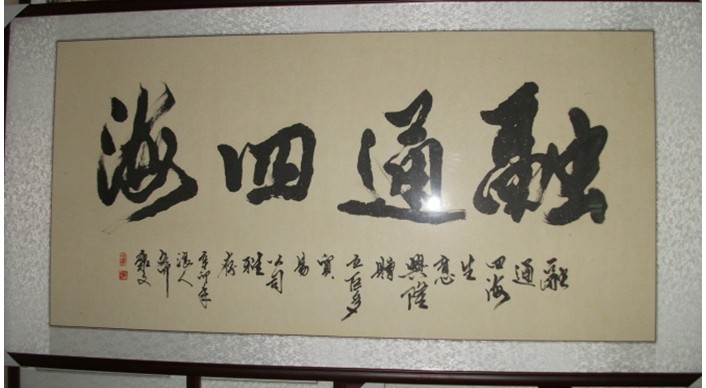 融通四海
融通
四海
生
意
興隆
贈
五百多
貿
易
公司
雅
存
辛卯年
浪人